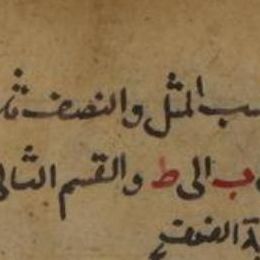 المثل والنصف
ب الى ط والقسم الثانى
الضعف